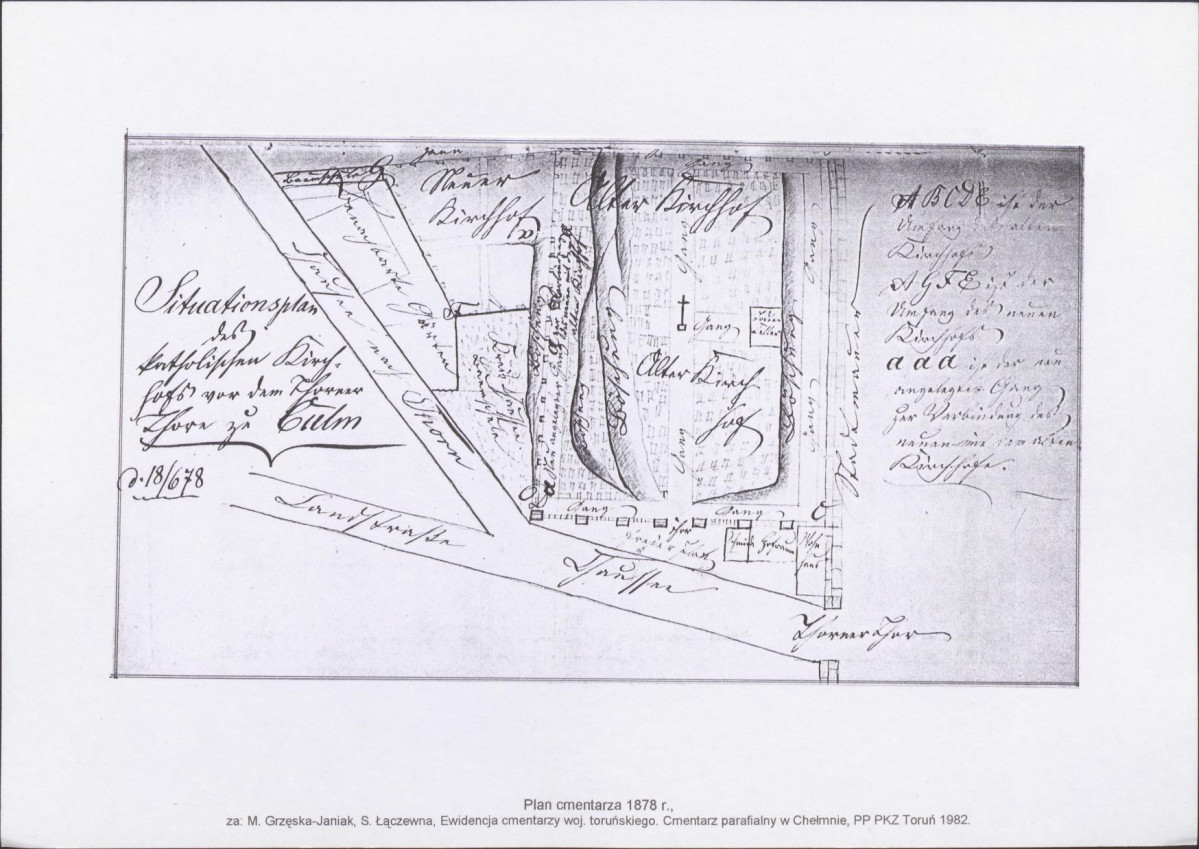 Zaun
Neuer
Kirchhof
Alter Kirchhof
Gang
Benachbarte Gärten
Chaussee nach Thorn
Situationsplan
des
katholischen Kirch-
hofs vor dem Thorner
Thore zu Culm
d. 18/6 78
G
D
F
Böschung
Böschung
Böschung
Gang
Gang
Gang
Alter Kirch
hof
Gang
Gang
Stadtmauer
a
C
Gang
Gang
Thor
Hofraum
Wohn
haus
Landstraße
Chaussee
Thorner Thor
A B C D E ist der
Umfang des alten
Kirchhofs
A G F E ist der
Umfang des neuen
Kirchhofs
a a a ist der neu
angelegte Gang
zur Verbindung des
neuen mit dem alten
Kirchhofe.
Plan cmentarza 1878 r.,
za: M. Grzęska-Janiak, S. Łączewna, Ewidencja cmentarzy woj. toruńskiego. Cmentarz parafialny w Chełmnie, PP PKZ Toruń 1982.